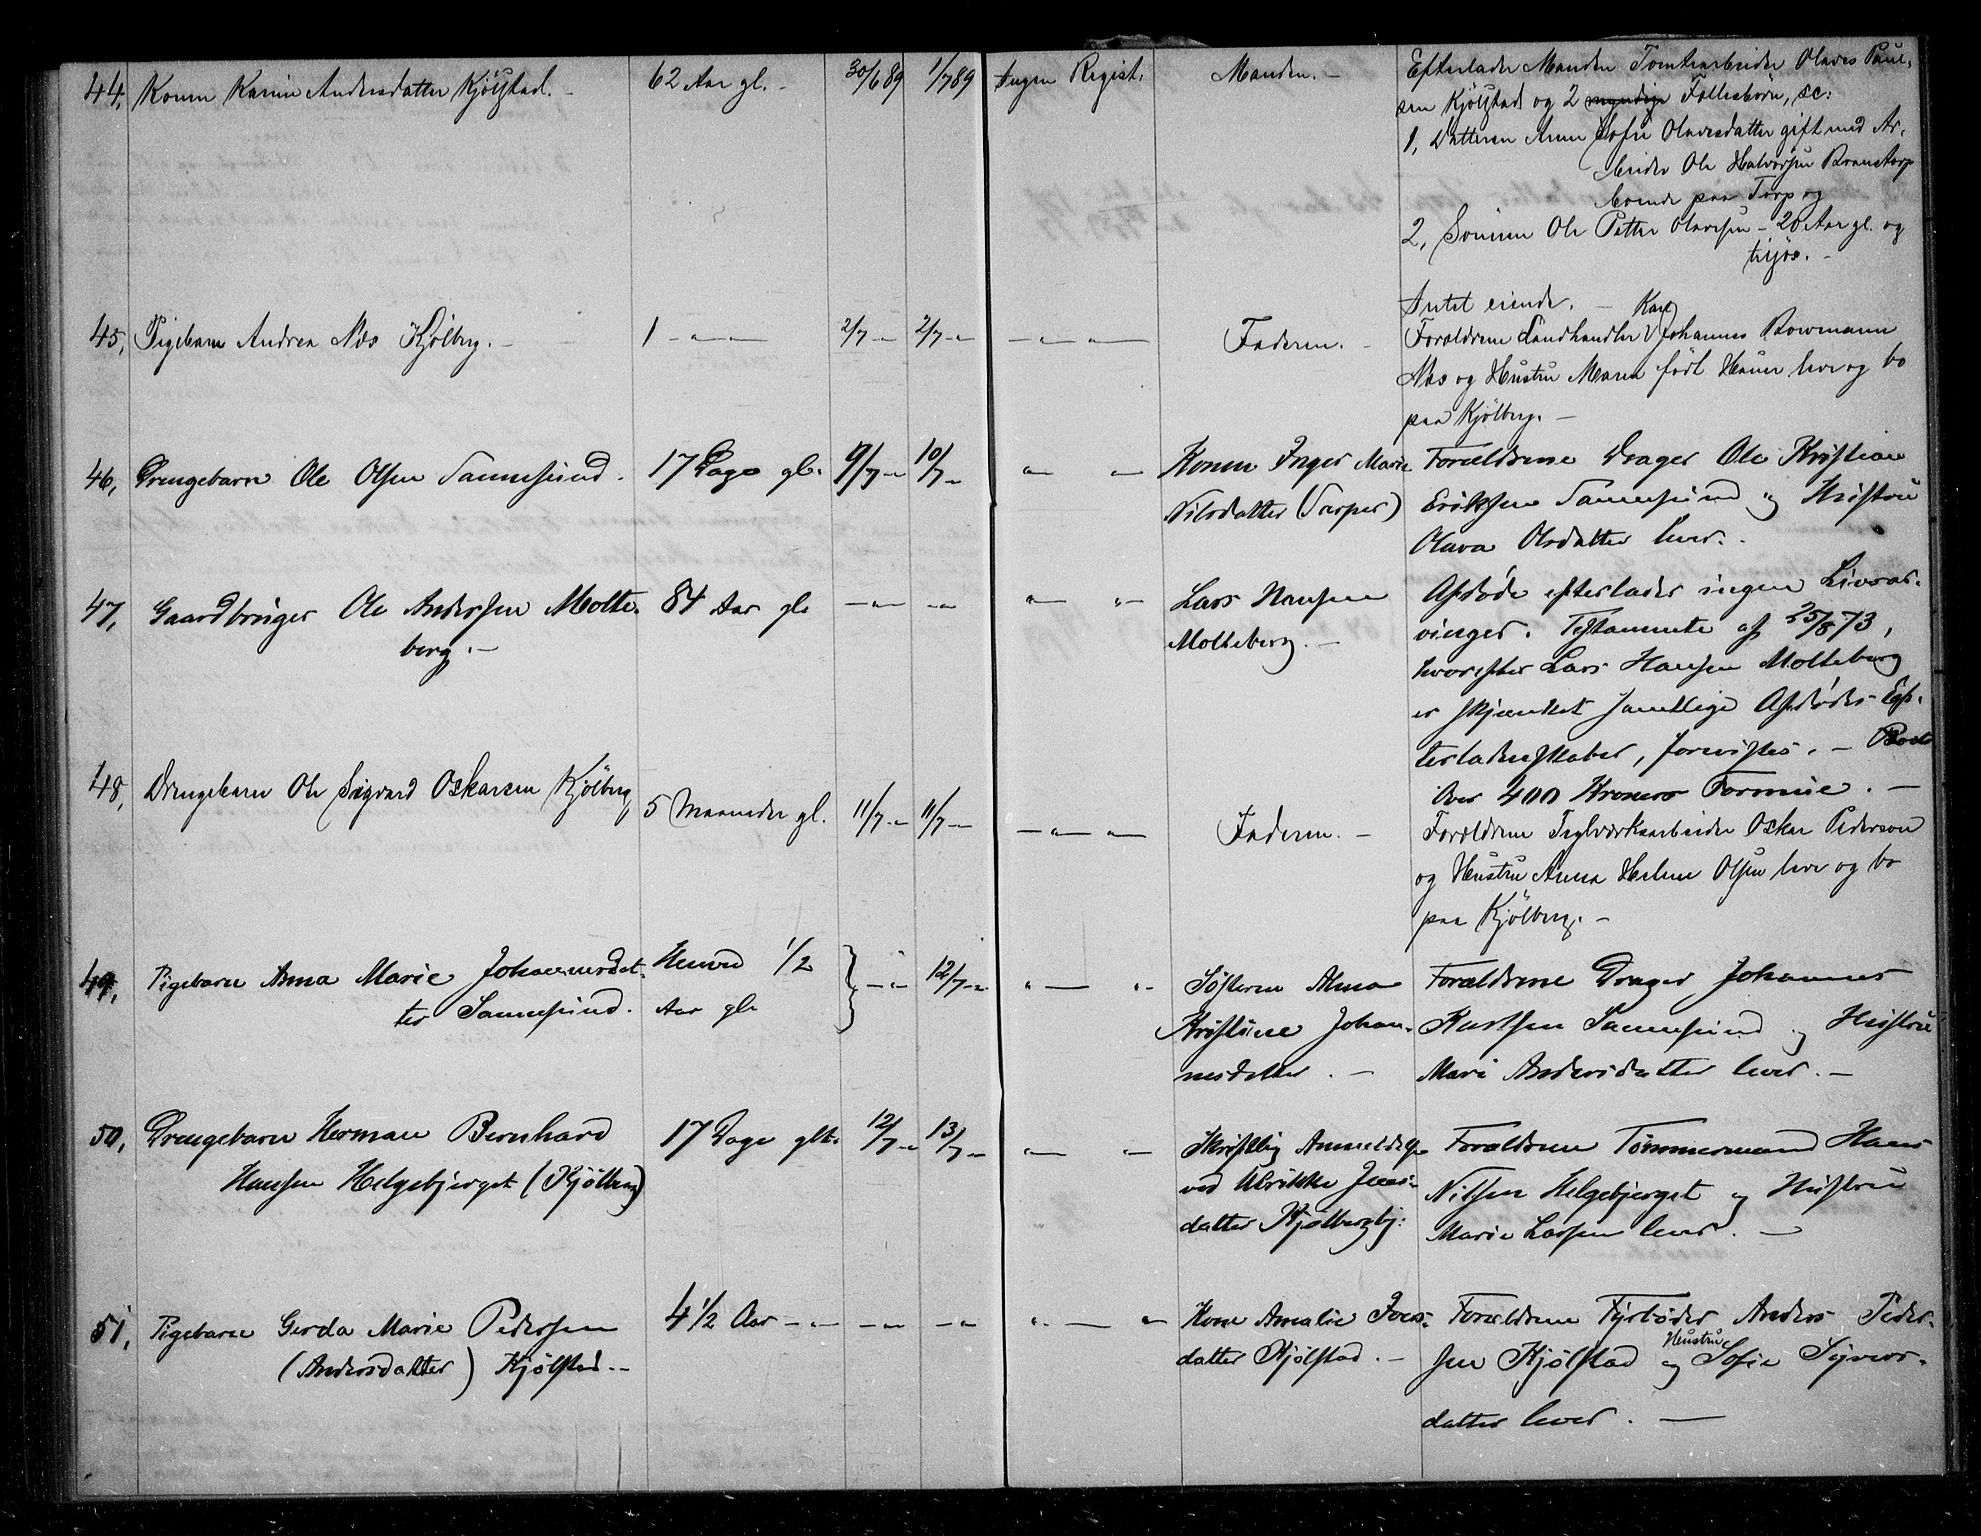 44, Konen Karine Andersdatter Kjölstad. - 62 Aar gl. - 30/6 89 1/7 89 Ingen Regist. Manden. -
Efterlader Manden Tomtearbeider Olaves Paul-
sen Kjölstad og 2 myndige Fællesbörn, sc:
1, Datteren Anne Sofie Olavesdatter gift med Ar-
beider Ole Halvorsen
boende paa Torp og
2, Sönnen Ole Petter Olavesen - 20 Aar gl. og
tilsjös. -
Intet eiende. -
45, Pigebarn Andrea Næs Kjölberg. - 1 - " - 2/7 - " 2/7 - " - " - " - Faderen. -
Karl
Forældrene Landhandler Johannes Bowmann
Næs og Hustru Maren födt Hauer leve og bo
paa Kjölberg. -
46, Drengebarn Ole Olsen Sannesund. 17 Dage gl. 9/7 - " 10/7 - " " " Konen Inger Marie
Nilsdatter (Sarpen)
Forældrene Drager Ole Kristian
Eriksen Sannesund og Hustru
Olava Olsdatter lever. -
47, Gaardbruger Ole Andersen Molte-
berg. - 84 Aar gl - " - - " - " - " - Lars Hansen
Molteberg. -
Afdöde efterlader ingen Livsar-
vinger. Testamente af 25/8 73,
hvorefter Lars Hansen Molteberg
er skjænket samtlige Afdödes Ef-
terladenskaber, forevistes. - Boets
Over 400 Kroners Formue. -
48, Drengebarn Ole Sigvard Oskarsen Kjölberg, 5 Maaneder gl. 11/7 - " 11/7 - " - " - " - Faderen. -
Forældrene Teglværksarbeider Oskar Pedersen
og Hustru Anna Helene Olsen leve og bo
paa Kjölberg. -
49, Pigebarn Anna Marie Johannesdat-
ter Sannesund. Henved 1/2
Aar gl - " - 12/7 - " " - " - Sösteren Alma
Kristine Johan-
nesdatter. -
Forældrene Drager Johannes
Karlsen Sannesund og Hustru
Mari Andersdatter lever. -
50, Drengebarn Herman Bernhard
Hansen Helgebjerget (Kjölberg) 17 Dage glt. 12/7 - " 13/7 - " " - " - Skriftlig Anmeldelse
ved Ulrikke Jens-
datter Kjölbergbj:
Forældrene Tömmermand Hans
Nilsen Helgebjerget og Hustru
Marie Larsen lever. -
51, Pigebarn Gerda Marie Pedersen
(Andersdatter) Kjölstad. - 4 1/2 Aar - " - - " - - " " - " - Kone Amalie Jens-
datter Kjölstad. -
Forældrene Fyrböder Anders Peder-
Hustru
sen Kjölstad og Sofie Syvers-
datter lever. -